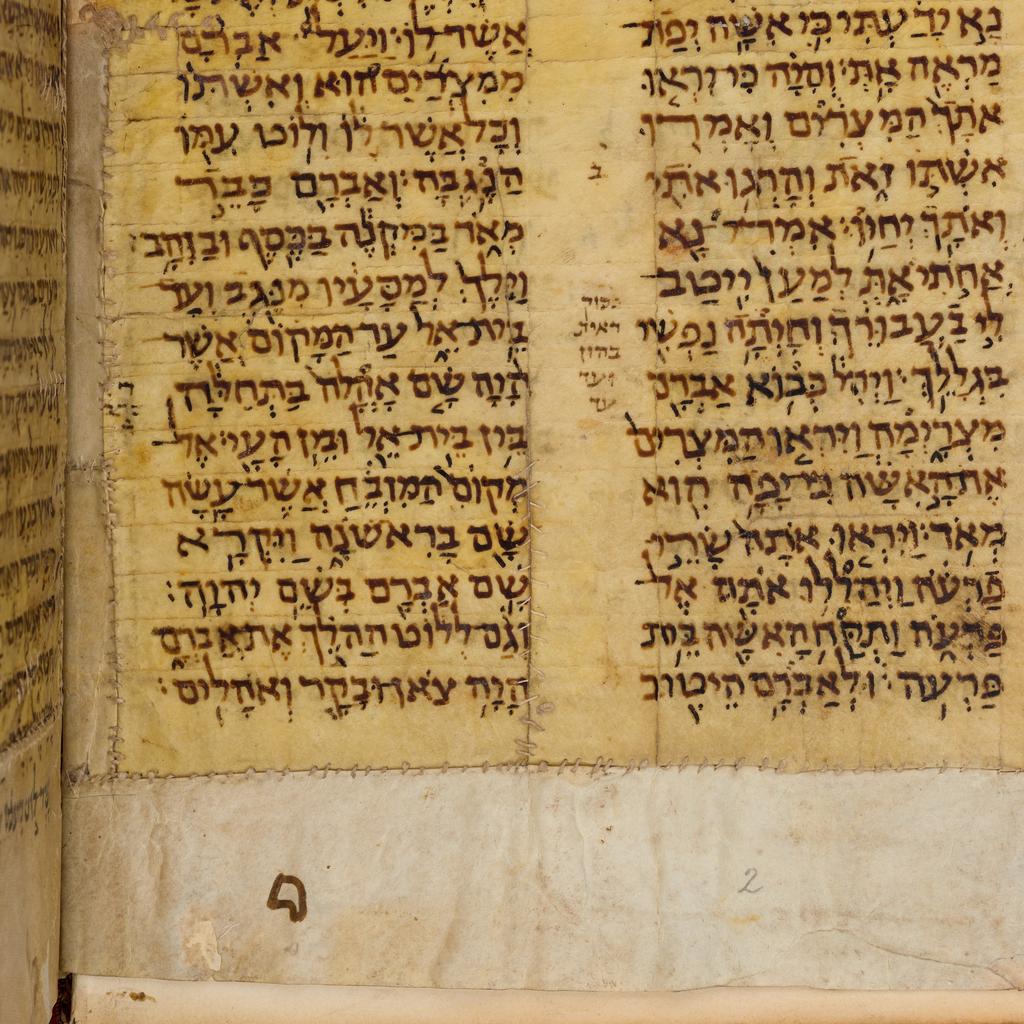 נָא יָדַעְתִּי כִּי אִשָּׁה יְפַת
מַרְאֶה אָתְּ׃ וְהָיָה כִּי יִרְאוּ
אֹתָךְ הַמִּצְרִים וְאָמְרוּ
אִשְׁתּוֹ זֹאת וְהָרְגוּ אֹתִי
וְאֹתָךְ יְחַיּוּ׃ אִמְרִי נָא
אֲחֹתִי אָתְּ לְמַעַן יִיטַב
לִי בַעֲבוּרֵךְ וְחָיְתָה נַפְשִׁי
בִּגְלָלֵךְ׃ וַיְהִי כְּבוֹא אַבְרָם
מִצְרָיְמָה וַיִּרְאוּ הַמִּצְרִים
אֶת הָאִשָּׁה כִּי יָפָה הִוא
מְאֹד׃ וַיִּרְאוּ אֹתָהּ שָׂרֵי
פַרְעֹה וַיְהַלְלוּ אֹתָהּ אֶל
פַּרְעֹה וַתֻּקַּח הָאִשָּׁה בֵּית
פַּרְעֹה׃ וּלְאַבְרָם הֵיטִיב
ב
אֲשֶׁר לוֹ׃ וַיַּעַל אַבְרָם
מִמִּצְרַיִם הוּא וְאִשְׁתּוֹ
וְכָל אֲשֶׁר לוֹ וְלוֹט עִמּוֹ
הַנֶּגְבָּה׃ וְאַבְרָם כָּבֵד
מְאֹד בַּמִּקְנֶה בַּכֶּסֶף וּבַזָּהָב׃
וַיֵּלֶךְ לְמַסָּעָיו מִנֶּגֶב וְעַד
בֵּית אֵל עַד הַמָּקוֹם אֲשֶׁר
הָיָה שָׁם אָהֳלֹה בַּתְּחִלָּה
בֵּין בֵּית אֵל וּבֵין הָעָי׃ אֶל
מְקוֹם הַמִּזְבֵּחַ אֲשֶׁר עָשָׂה
שָׁם בָּרִאשֹׁנָה וַיִּקְרָא
שָׁם אַבְרָם בְּשֵׁם יְהוָה׃
וְגַם לְלוֹט הַהֹלֵךְ אֶת אַבְרָם
הָיָה צֹאן וּבָקָר וְאֹהָלִים׃
2